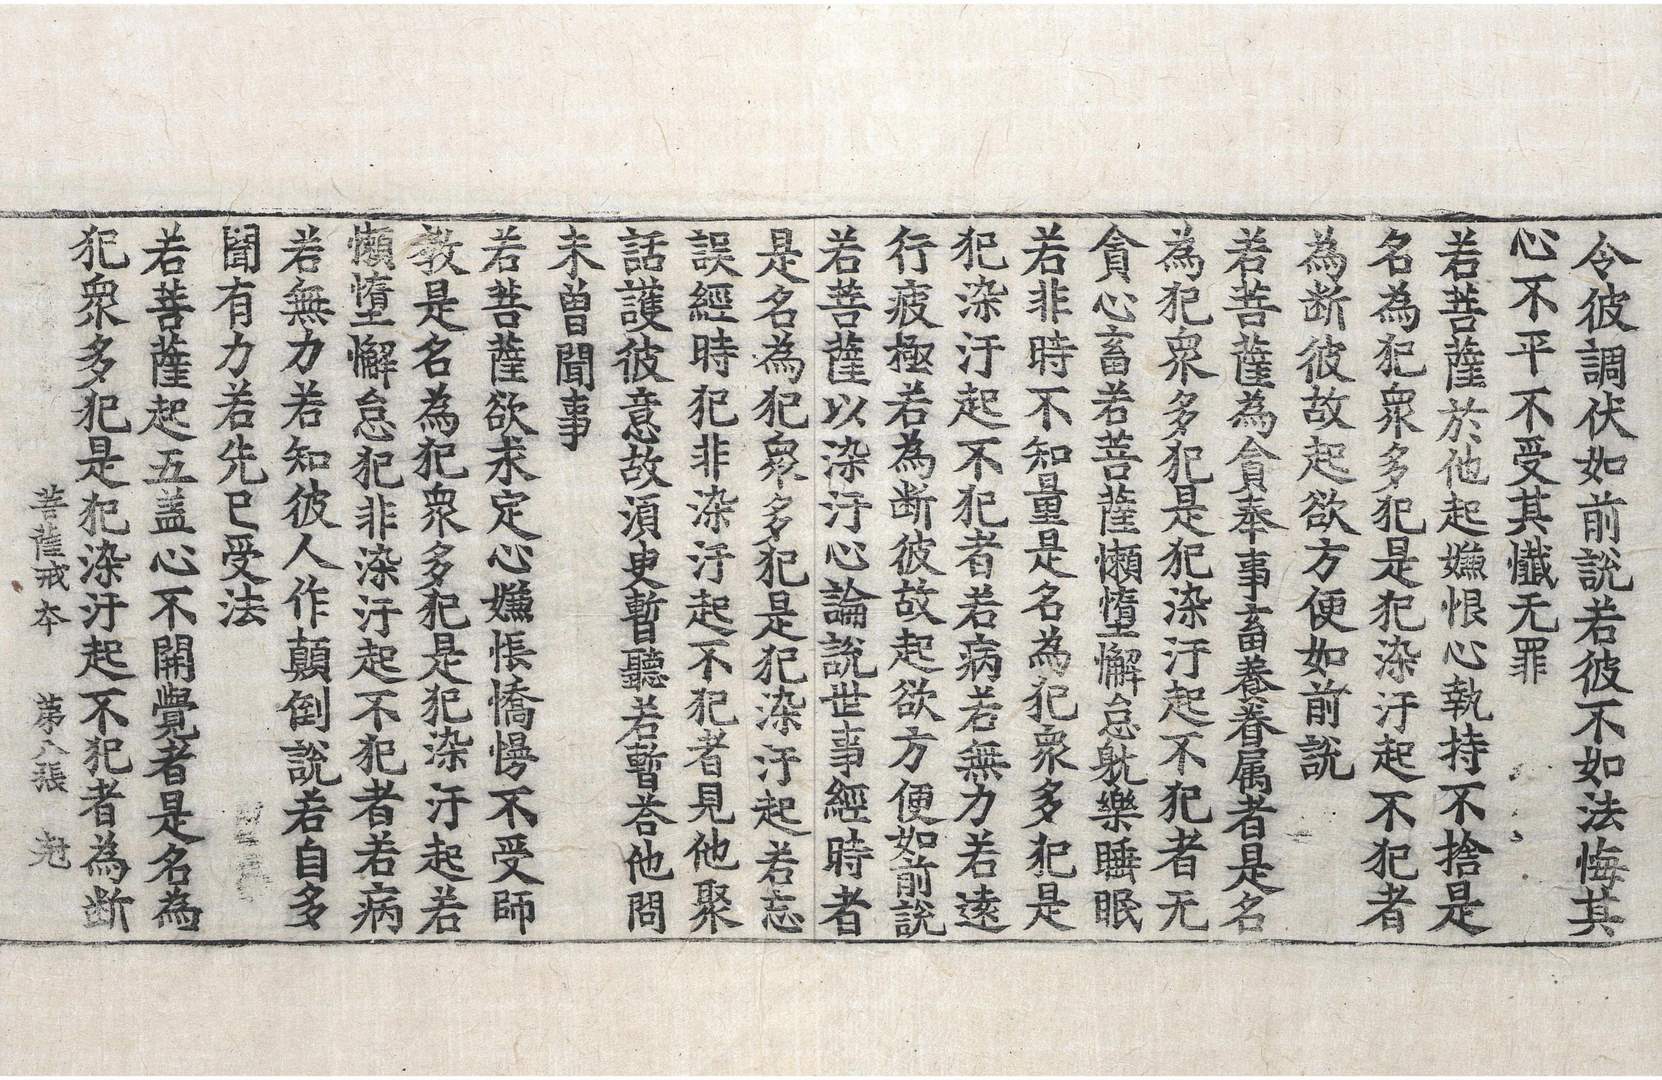 令彼調伏如前說若彼不如法悔其
心不平不受其懺无罪
若菩薩於他起嫌恨心執持不捨是
名為犯衆多犯是犯染汙起不犯者
為断彼故起欲方便如前說
若菩薩為貪奉事畜養眷属者是名
為犯衆多犯是犯染汙起不犯者无
貪心畜若菩薩懶惰懈怠躭樂睡眠
若非時不知量是名為犯衆多犯是
犯染汙起不犯者若病若無力若遠
行疲極若為断彼故起欲方便如前說
若菩薩以染汙心論說世事經時者
是名為犯衆多犯是犯染汙起若忘
誤經時犯非染汙起不犯者見他聚
話護彼意故湏臾暫聽若暫荅他問
未曽聞事
若菩薩欲求定心嫌恨憍慢不受師
教是名為犯衆多犯是犯染汙起若
懶惰懈怠犯非染汙起不犯者若病
若無力若知彼人作顛倒說若自多
聞有力若先已受法
若菩薩起五盖心不開覺者是名為
犯衆多犯是犯染汙起不犯者為断
菩薩戒本　第八張